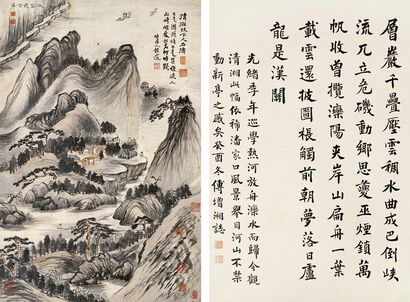 層巖千疊壓雲稠水曲成巴倒峽
流兀立危磯動鄉思夔巫煙鎖萬
帆收曾攬灤陽夾岸山扁舟一葉
載雲還披圖棖觸前朝夢落日盧
龍是漢關
光緒季年巡學熱河放舟灤水而歸今觀
清湘此幅依稀潘家口風景舉目河山不禁
動新亭之感矣癸酉冬傅增湘誌
清湘枝下人石濤